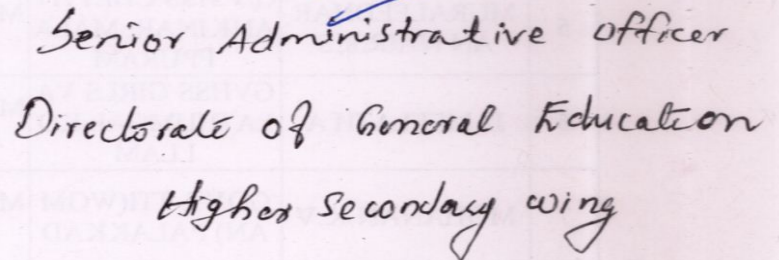 Senior Administrative officer
Directorate of General Education
Higher secondary wing